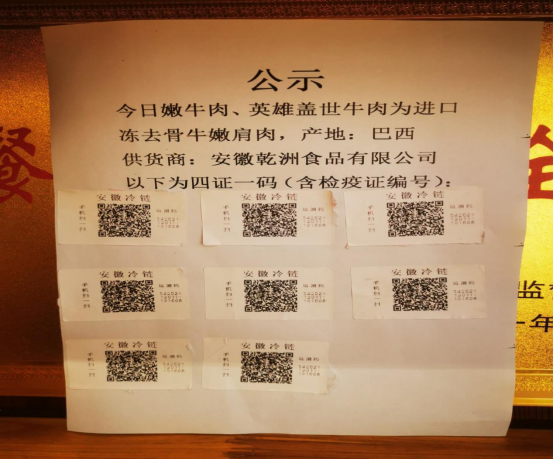 公示
今日嫩牛肉、英雄盖世牛肉为进口
冻去骨牛嫩肩肉，产地：巴西
供货商：安徽乾洲食品有限公司
以下为四证一码（含检疫证编号）：
安徽冷链
手机扫一扫
追溯码
安徽冷链
手机扫一扫
追溯码
安徽冷链
手机扫一扫
追溯码
安徽冷链
手机扫一扫
追溯码
安徽冷链
手机扫一扫
追溯码
安徽冷链
手机扫一扫
追溯码
安徽冷链
手机扫一扫
追溯码
安徽冷链
手机扫一扫
追溯码
餐
监
年